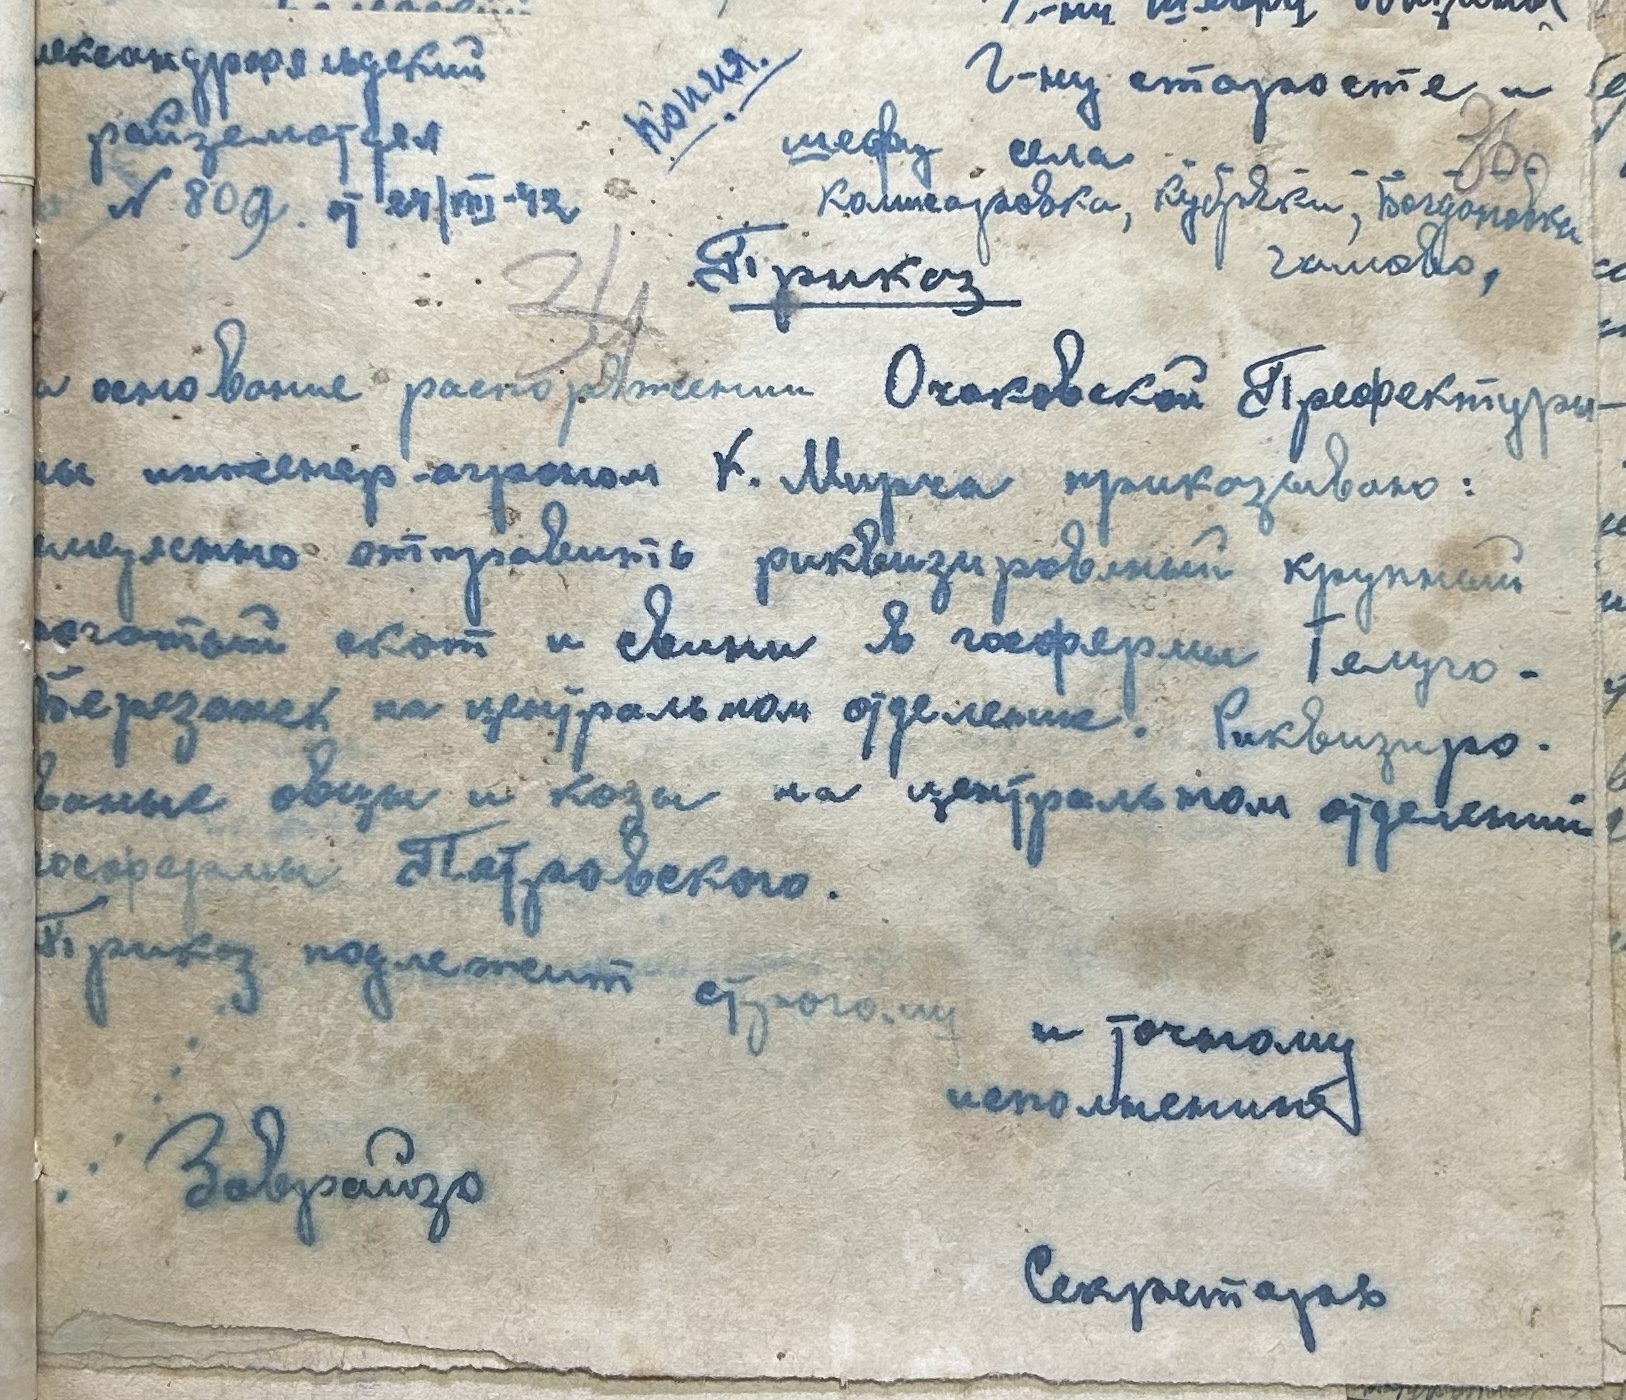 лександрфельдский
райземотдел
N 809. от 24/III-42
Копия.
Г-ну старосте и
шефу села
Комисаровка, Кубряки, Богдановка
36
Приказ
34
а основание распоряжении Очаковской Префектуры
ы инженер-агроном К. Мирча приказываю:
емедленно отправить риквизировеный крупный
рогатый скот и свини в госфермы
Березанен на центральном отделение. Риквизиро-
ваные овцы и козы на центральном отделений
госфермы Петровского.
Приказ подлежит строгому
и точному
исполнению
Заврайзо
Секретарь